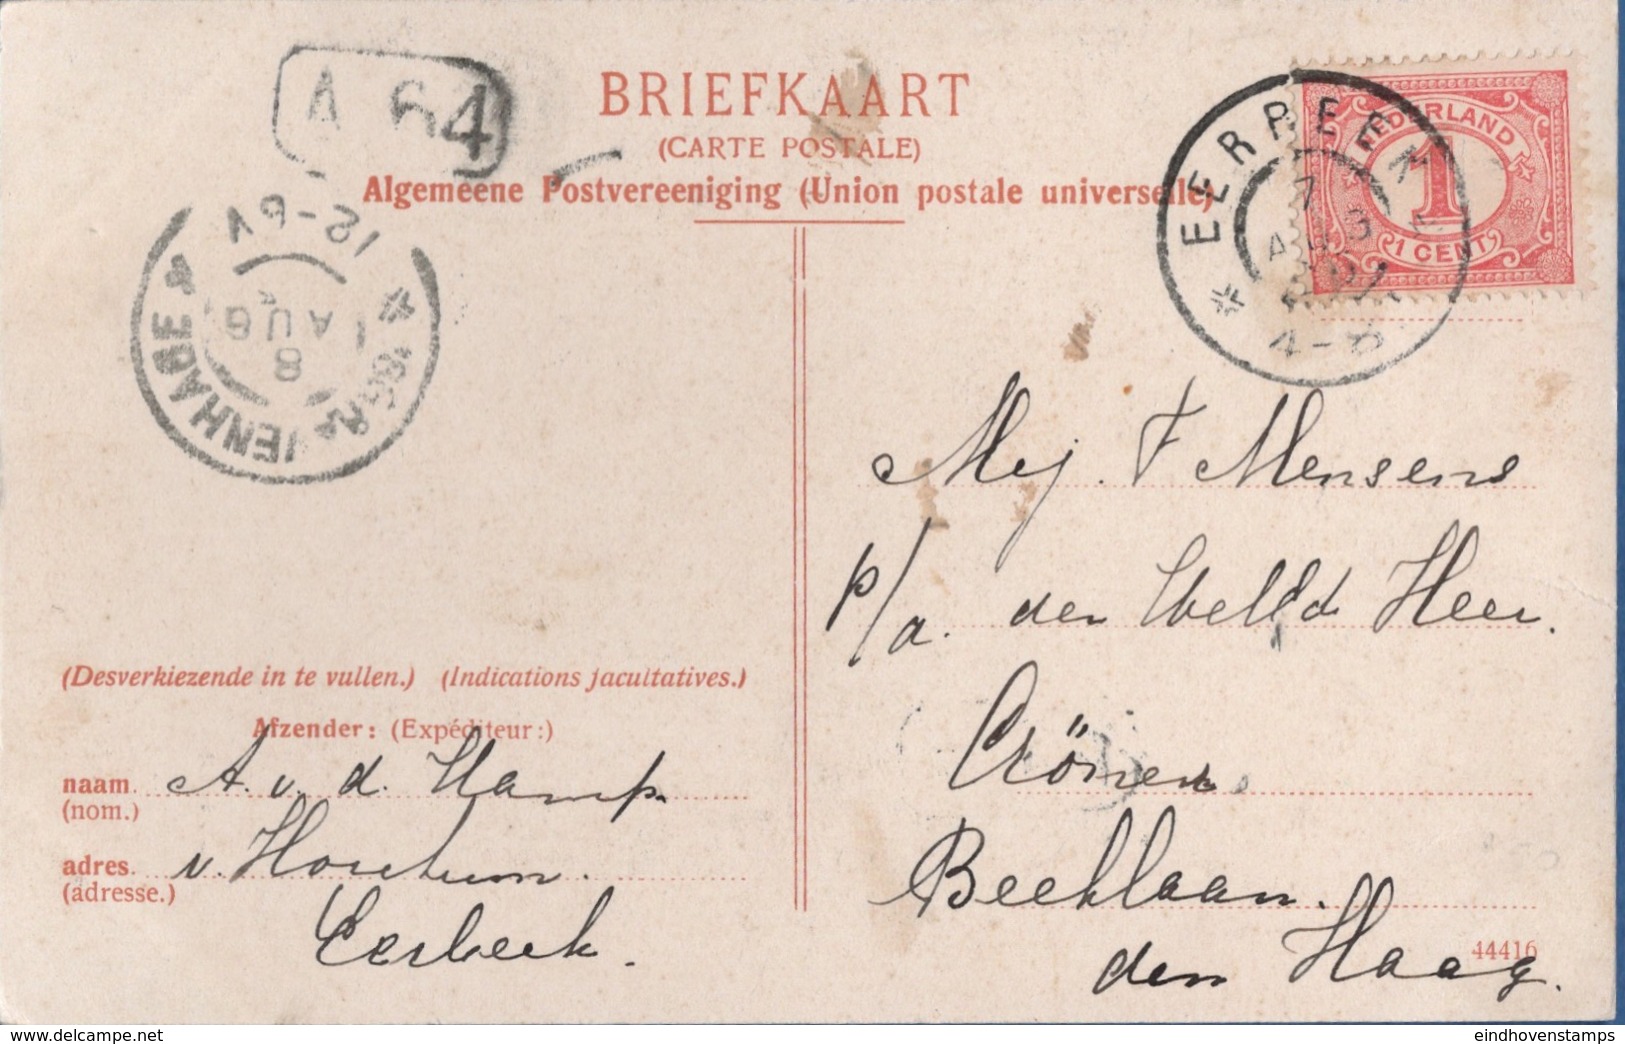 BRIEFKAART
(CARTE POSTALE)
Algemeene Postvereeniging (Union postale universelle)
A 64
12-6V
8
AUG
EERBEEK
7
AUG
4-8
NEDERLAND
1
1 CENT
Mej. F Mensens
p/a. den WelEd Heer.
Crönen
Beeklaan.
den Haag.
(Desverkiezende in te vullen.) (Indications jacultatives.)
Afzender: (Expéditeur:)
naam. A. v. d. Kamp.
(nom.)
adres.
(adresse.)
Eerbeek.
44416
eindhovenstamps